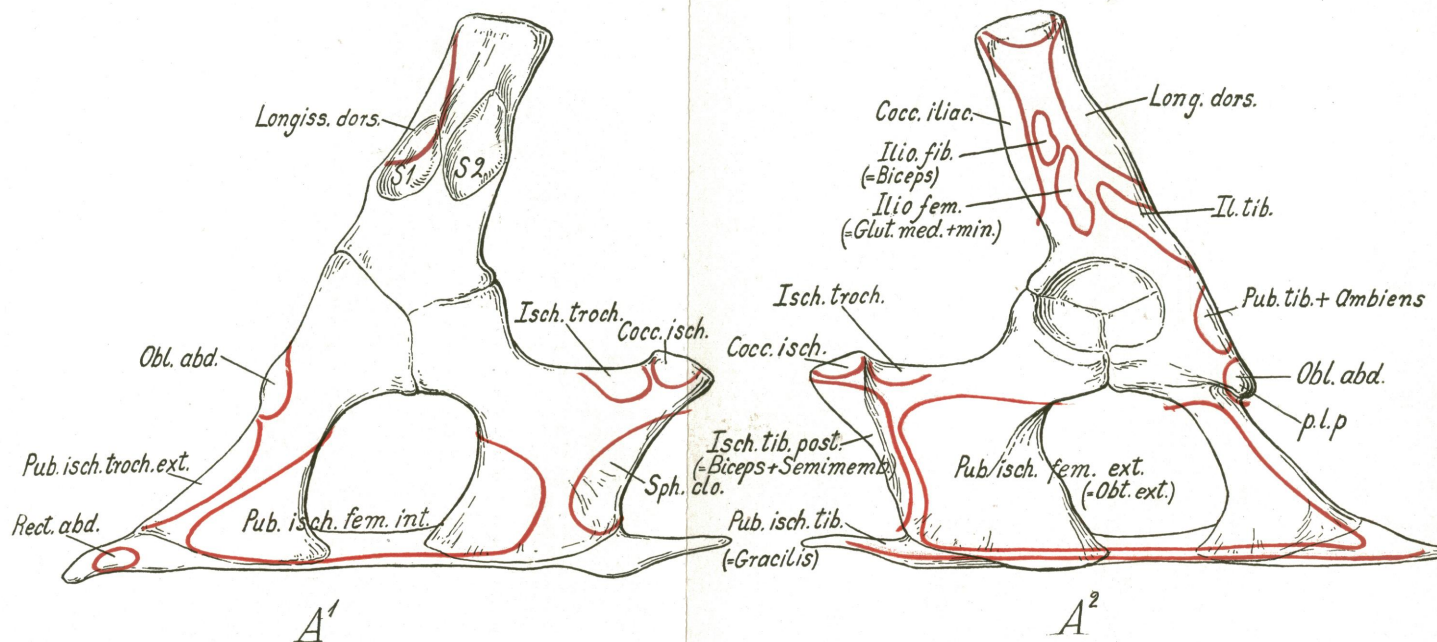 Longiss. dors.
S1
S2
Isch. troch.
Cocc. isch.
Obl. abd.
Pub. isch. troch. ext.
Sph. clo.
Pub. isch. fem. int.
Rect. abd.
A¹
Cocc. iliac.
Long. dors.
Ilio. fib.
(=Biceps)
Ilio fem.
(=Glut. med. + min.)
Il. tib.
Isch. troch.
Pub. tib. + Ambiens
Cocc. isch.
Obl. abd.
p.l.p
Isch. tib. post.
(=Biceps + Semimemb.)
Pub/isch. fem. ext.
(=Obt. ext.)
Pub. isch. tib.
(=Gracilis)
A²